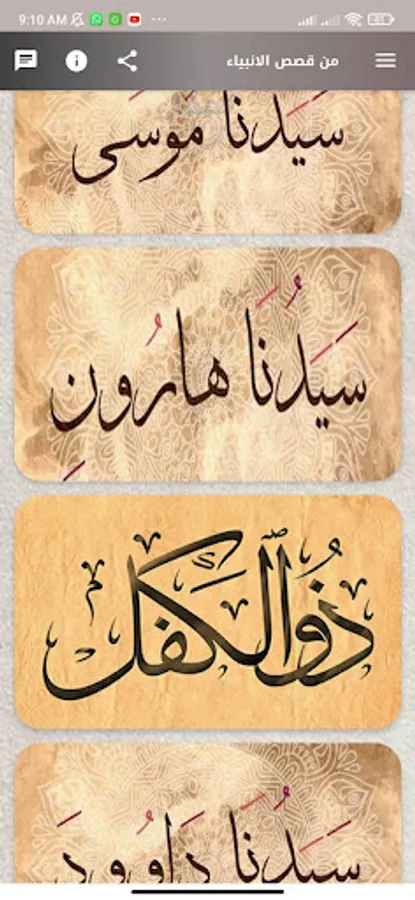 9:10 AM
من قصص الانبياء
سَيَدُنَا مُوسَى
سَيَدُنَا هارُونِ
ذُو ٱلكَفل
سَيَدُنَا دَاوُودَ